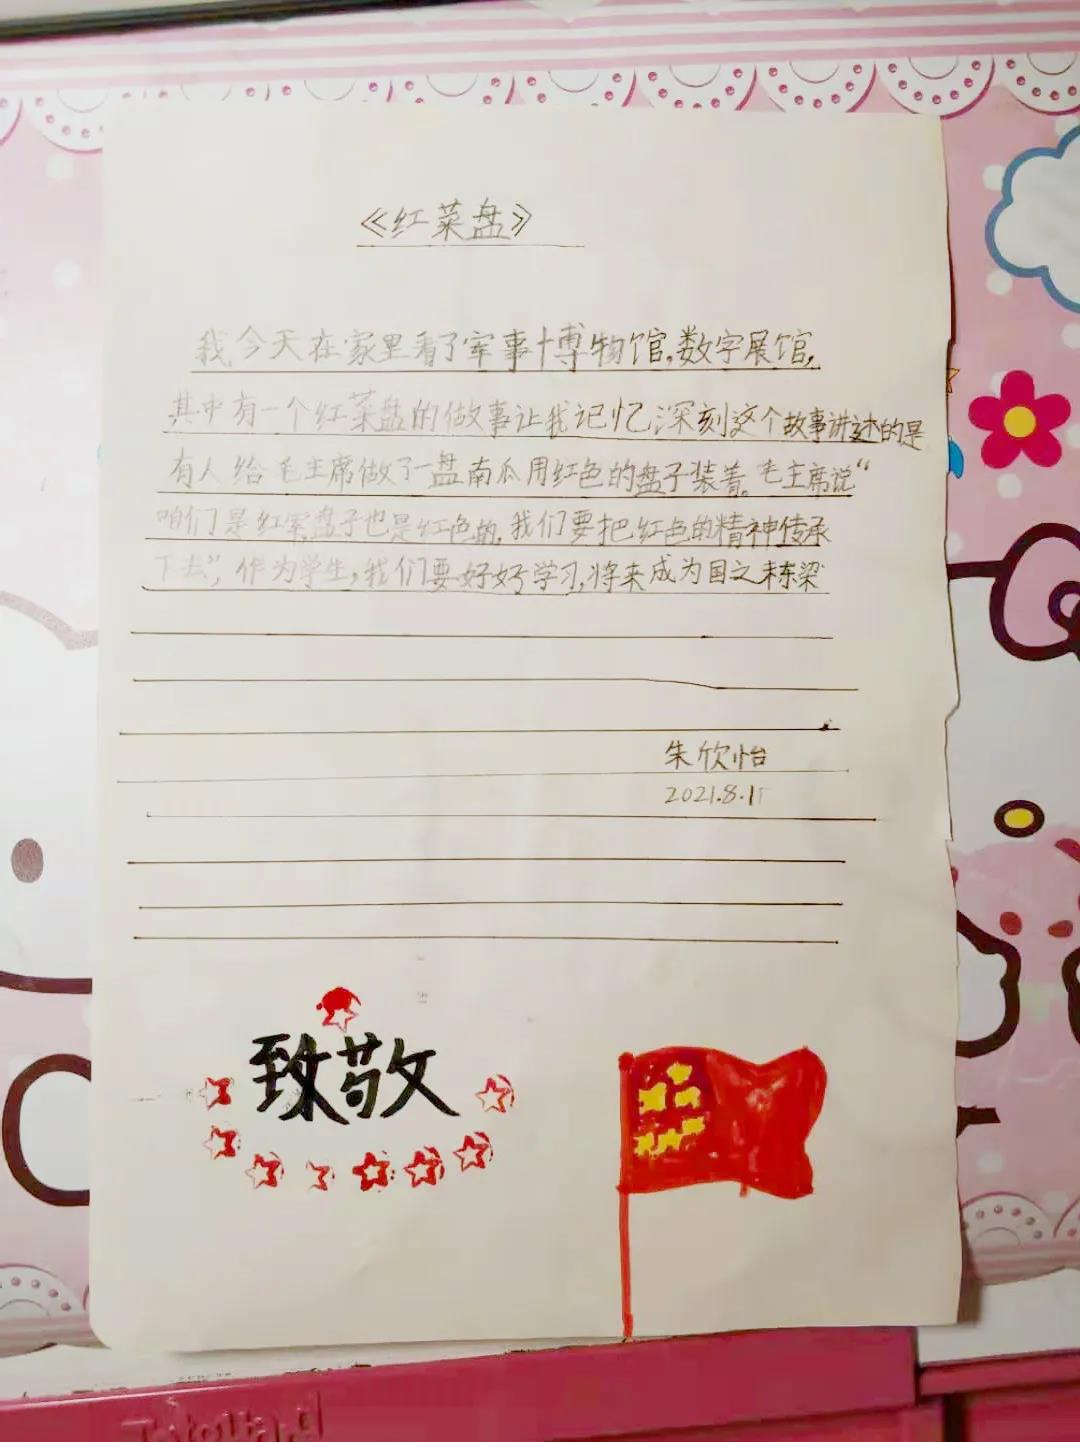 《红菜盘》
我今天在家里看了军事博物馆,数字展馆,
其中有一个红菜盘的做事让我记忆深刻这个故事讲述的是
有人给毛主席做了一盘南瓜用红色的盘子装着。毛主席说“
咱们是红军盘子也是红色的,我们要把红色的精神传承
下去”,作为学生,我们要好好学习,将来成为国之栋梁
朱欣怡
2021.8.11
致敬